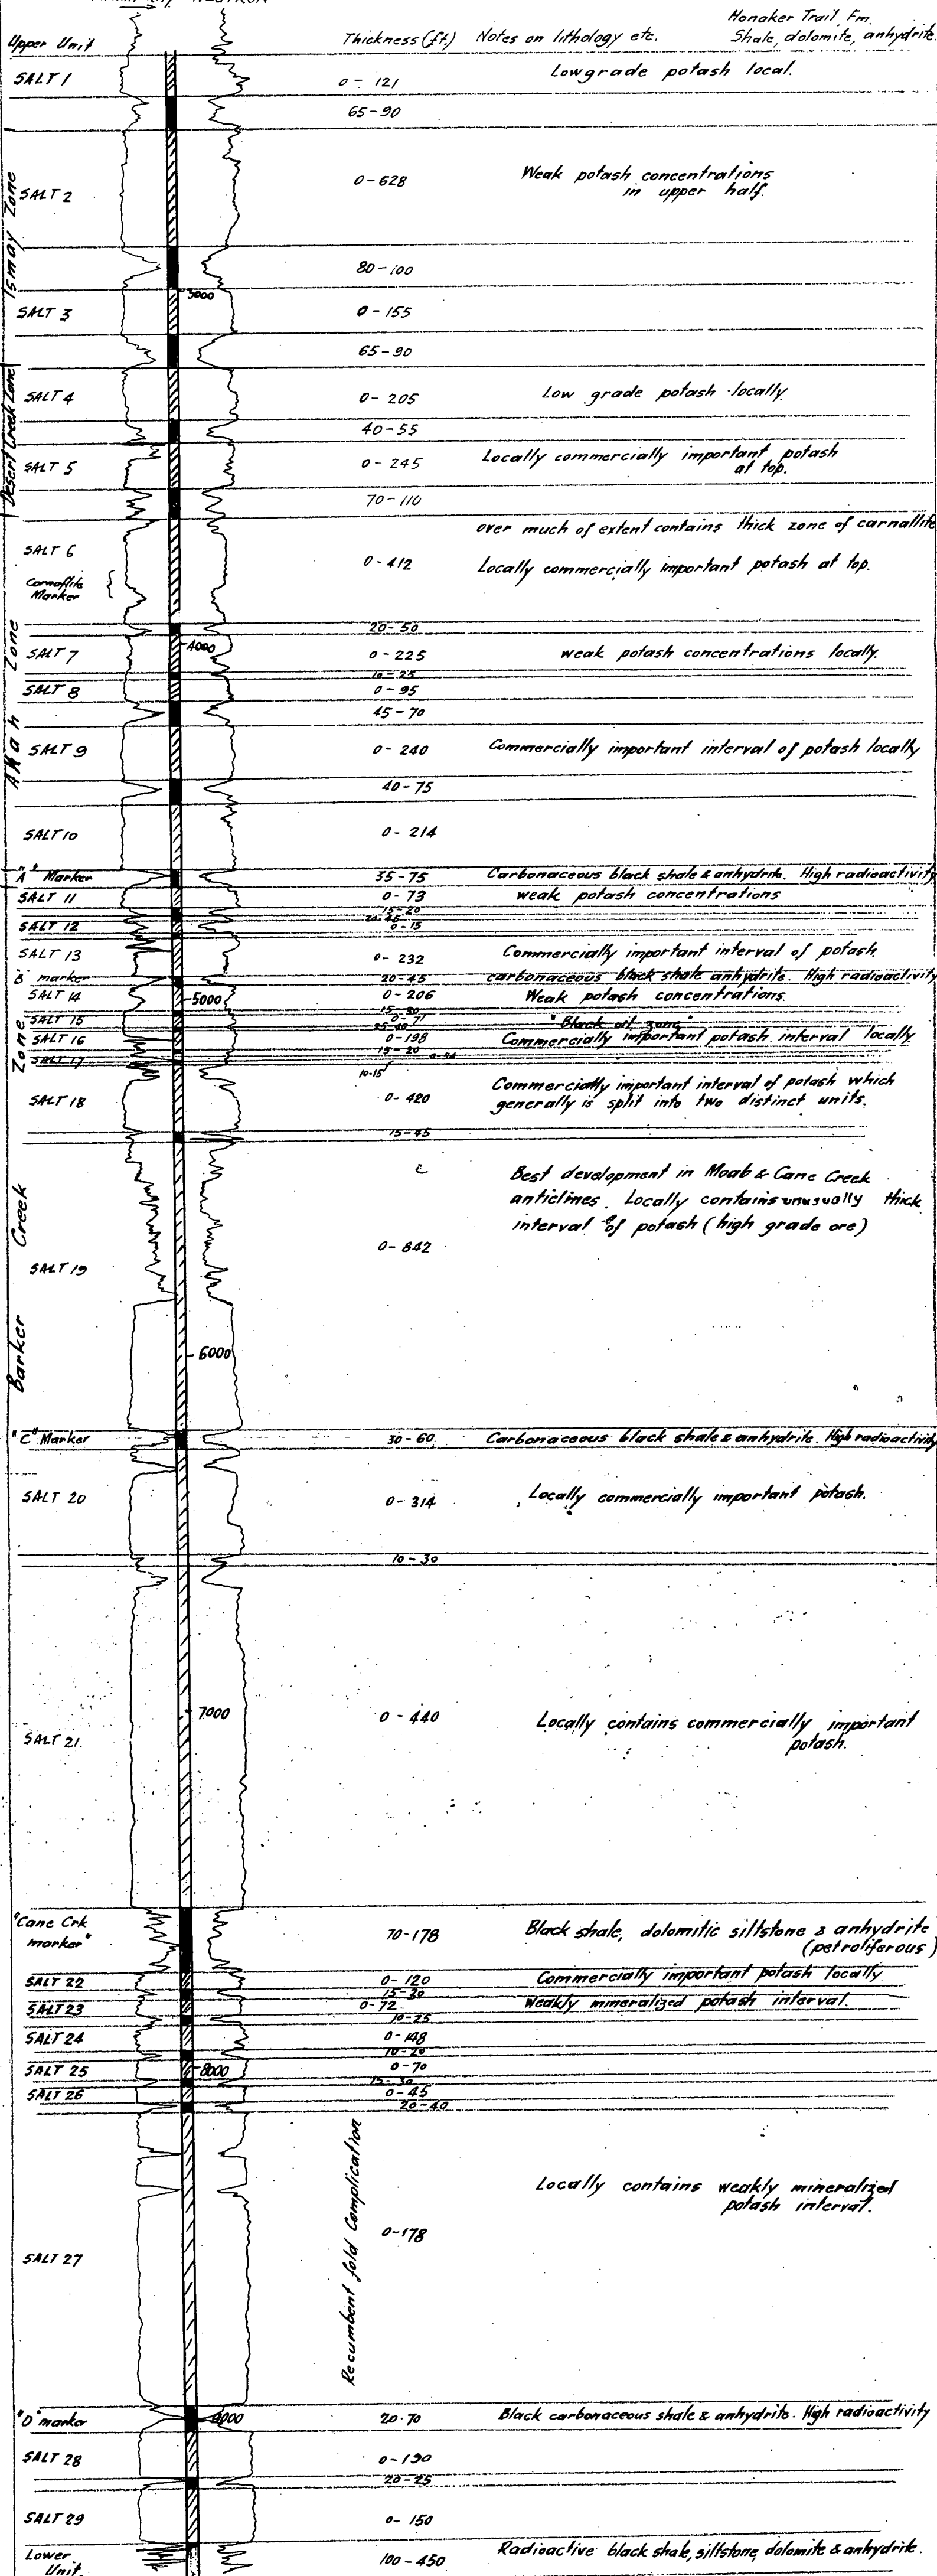 NEUTRON
Honaker Trail Fm.
Upper Unit Thickness (ft.) Notes on lithology etc. Shale, dolomite, anhydrite.
SALT 1 0 - 121 Lowgrade potash local.
65-90
Ismay Zone
SALT 2 0-628 Weak potash concentrations
in upper half.
80-100
5000
SALT 3 0-155
65-90
Desert Creek Zone
SALT 4 0-205 Low grade potash locally
40-55
SALT 5 0-245 Locally commercially important potash
at top.
70-110
over much of extent contains thick zone of carnallite
SALT 6 0-412 Locally commercially important potash at top.
Carnallite
Marker
Akah Zone
20-50
4000
SALT 7 0-225 weak potash concentrations locally.
10-25
SALT 8 0-95
45-70
SALT 9 0-240 Commercially important interval of potash locally
40-75
SALT 10 0-214
"A" Marker 35-75 Carbonaceous black shale & anhydrite. High radioactivity
SALT 11 0-73 weak potash concentrations
15-20
20-45
SALT 12 0-15
SALT 13 0-232 Commercially important interval of potash.
"B" marker 20-45 carbonaceous black shale anhydrite. High radioactivity
SALT 14 5000 0-206 Weak potash concentrations.
15-30
SALT 15 0-71 "Black oil zone"
25-40
SALT 16 0-198 Commercially important potash interval locally
15-20
SALT 17
10-15
SALT 18 0-420 Commercially important interval of potash which
generally is split into two distinct units.
15-45
Barker Creek Zone
Best development in Moab & Cane Creek
anticlines. Locally contains unusually thick
interval of potash (high grade ore)
SALT 19 0-842
6000
"C" Marker 30-60 Carbonaceous black shale & anhydrite. High radioactivity
SALT 20 0-314 Locally commercially important potash.
10-30
7000
SALT 21 0-440 Locally contains commercially important
potash.
"Cane Crk
marker" 70-178 Black shale, dolomitic siltstone & anhydrite
(petroliferous)
SALT 22 0-120 Commercially important potash locally
15-20
SALT 23 0-72 Weakly mineralized potash interval.
10-25
SALT 24 0-148
10-20
SALT 25 8000 0-70
15-30
SALT 26 0-45
20-40
Recumbent fold Complication
Locally contains weakly mineralized
potash interval.
SALT 27 0-178
"D" marker 9000 20-70 Black carbonaceous shale & anhydrite. High radioactivity
SALT 28 0-190
20-25
SALT 29 0-150
Lower
Unit. 100-450 Radioactive black shale, siltstone, dolomite & anhydrite.